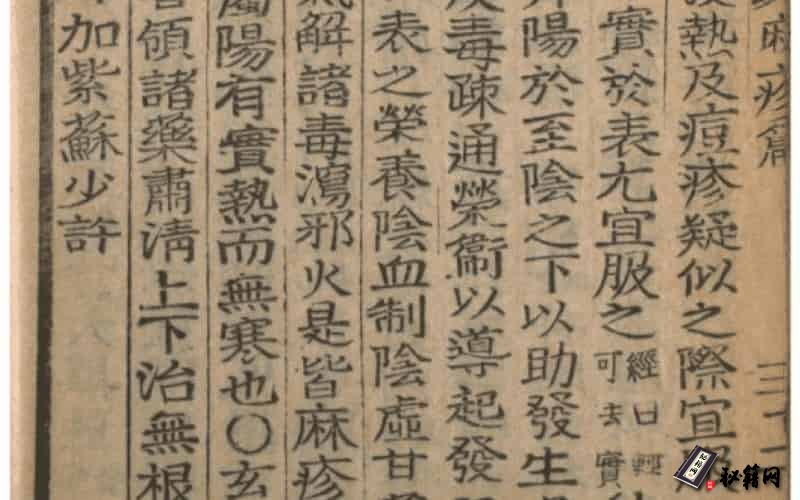 麻疹篇
三十二
熱及痘疹疑似之際宜
實於表尤宜服之
經曰輕
可去實
陽於至陰之下以助發生
毒疎通榮衞以導起發
表之榮養陰血制陰虛甘
解諸毒瀉邪火是皆麻疹
屬陽有實熱而無寒也〇玄
領諸藥肅淸上下治無根
加紫蘇少許
秘籍网